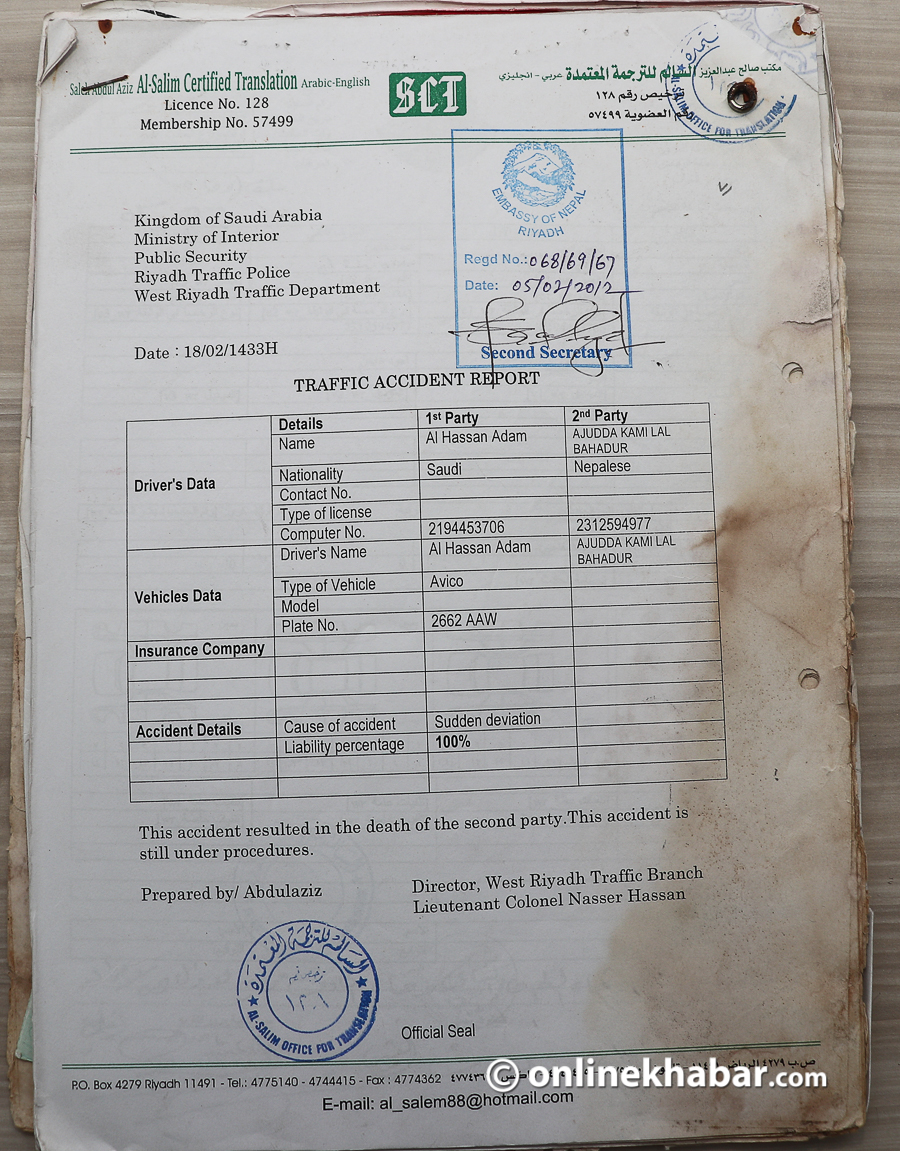 Saleh Abdul Aziz Al-Salim Certified Translation Arabic-English
Licence No. 128
Membership No. 57499
SCT
مكتب صالح عبدالعزيز السالم للترجمة المعتمدة عربي - انجليزي
رقم ١٢٨
رقم العضوية ٥٧٤٩٩
AL-SALIM OFFICE FOR TRANSLATION
EMBASSY OF NEPAL
RIYADH
Regd No.: 068/69/67
Date: 05/02/2012
Second Secretary
Kingdom of Saudi Arabia
Ministry of Interior
Public Security
Riyadh Traffic Police
West Riyadh Traffic Department
Date : 18/02/1433H
TRAFFIC ACCIDENT REPORT
Details 1st Party 2nd Party
Driver's Data
Name Al Hassan Adam AJUDDA KAMI LAL BAHADUR
Nationality Saudi Nepalese
Contact No.
Type of license
Computer No. 2194453706 2312594977
Vehicles Data
Driver's Name Al Hassan Adam AJUDDA KAMI LAL BAHADUR
Type of Vehicle Avico
Model
Plate No. 2662 AAW
Insurance Company
Accident Details Cause of accident Sudden deviation
Liability percentage 100%
This accident resulted in the death of the second party.This accident is
still under procedures.
Prepared by/ Abdulaziz
Director, West Riyadh Traffic Branch
Lieutenant Colonel Nasser Hassan
السالم للترجمة المعتمدة
AL-SALIM OFFICE FOR TRANSLATION
Official Seal
P.O. Box 4279 Riyadh 11491 - Tel.: 4775140 - 4744415 - Fax : 4774362
ص.ب ٤٢٧٩ الرياض
E-mail: al_salem88@hotmail.com
© onlinekhabar.com